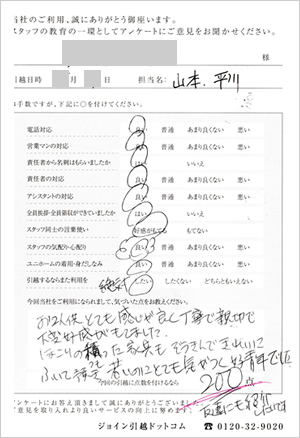 当社のご利用、誠にありがとう御座います。
スタッフの教育の一環としてアンケートにご意見をお聞かせください。
様
引越日時 月 日 担当名: 山本、平川
お手数ですが、下記に○を付けてください。
電話対応 良い 普通 あまり良くない 悪い
営業マンの対応 良い 普通 あまり良くない 悪い
責任者から名刺はもらいましたか はい いいえ
責任者の対応 良い 普通 あまり良くない 悪い
アシスタントの対応 良い 普通 あまり良くない 悪い
全員挨拶・全員笑顔ができていましたか はい いいえ
スタッフ同士の言葉使い 好感がもてる もてない
スタッフの気配り・心配り 良い 普通 あまり良くない 悪い
ユニホームの着用・身だしなみ 良い 普通 あまり良くない 悪い
引越するならまた利用を 絶対 したい したくない どちらともいえない
今回当社をご利用になられまして、気づいた点をお教えください。
お2人供とても感じが良く丁寧で親切で
大変好感がもてました。
ほこりの積った家具もぞうきんできれいに
ふいて頂き 若いのにとても気がつく好青年でした
今回の引越しに点数を付けるなら 200点
友達にも紹介したいです
アンケートにお答え頂きまして誠にありがとうございました。
ご意見を取り入れより良いサービスの向上に努めます。
ジョイン引越ドットコム ☎0120-32-9020